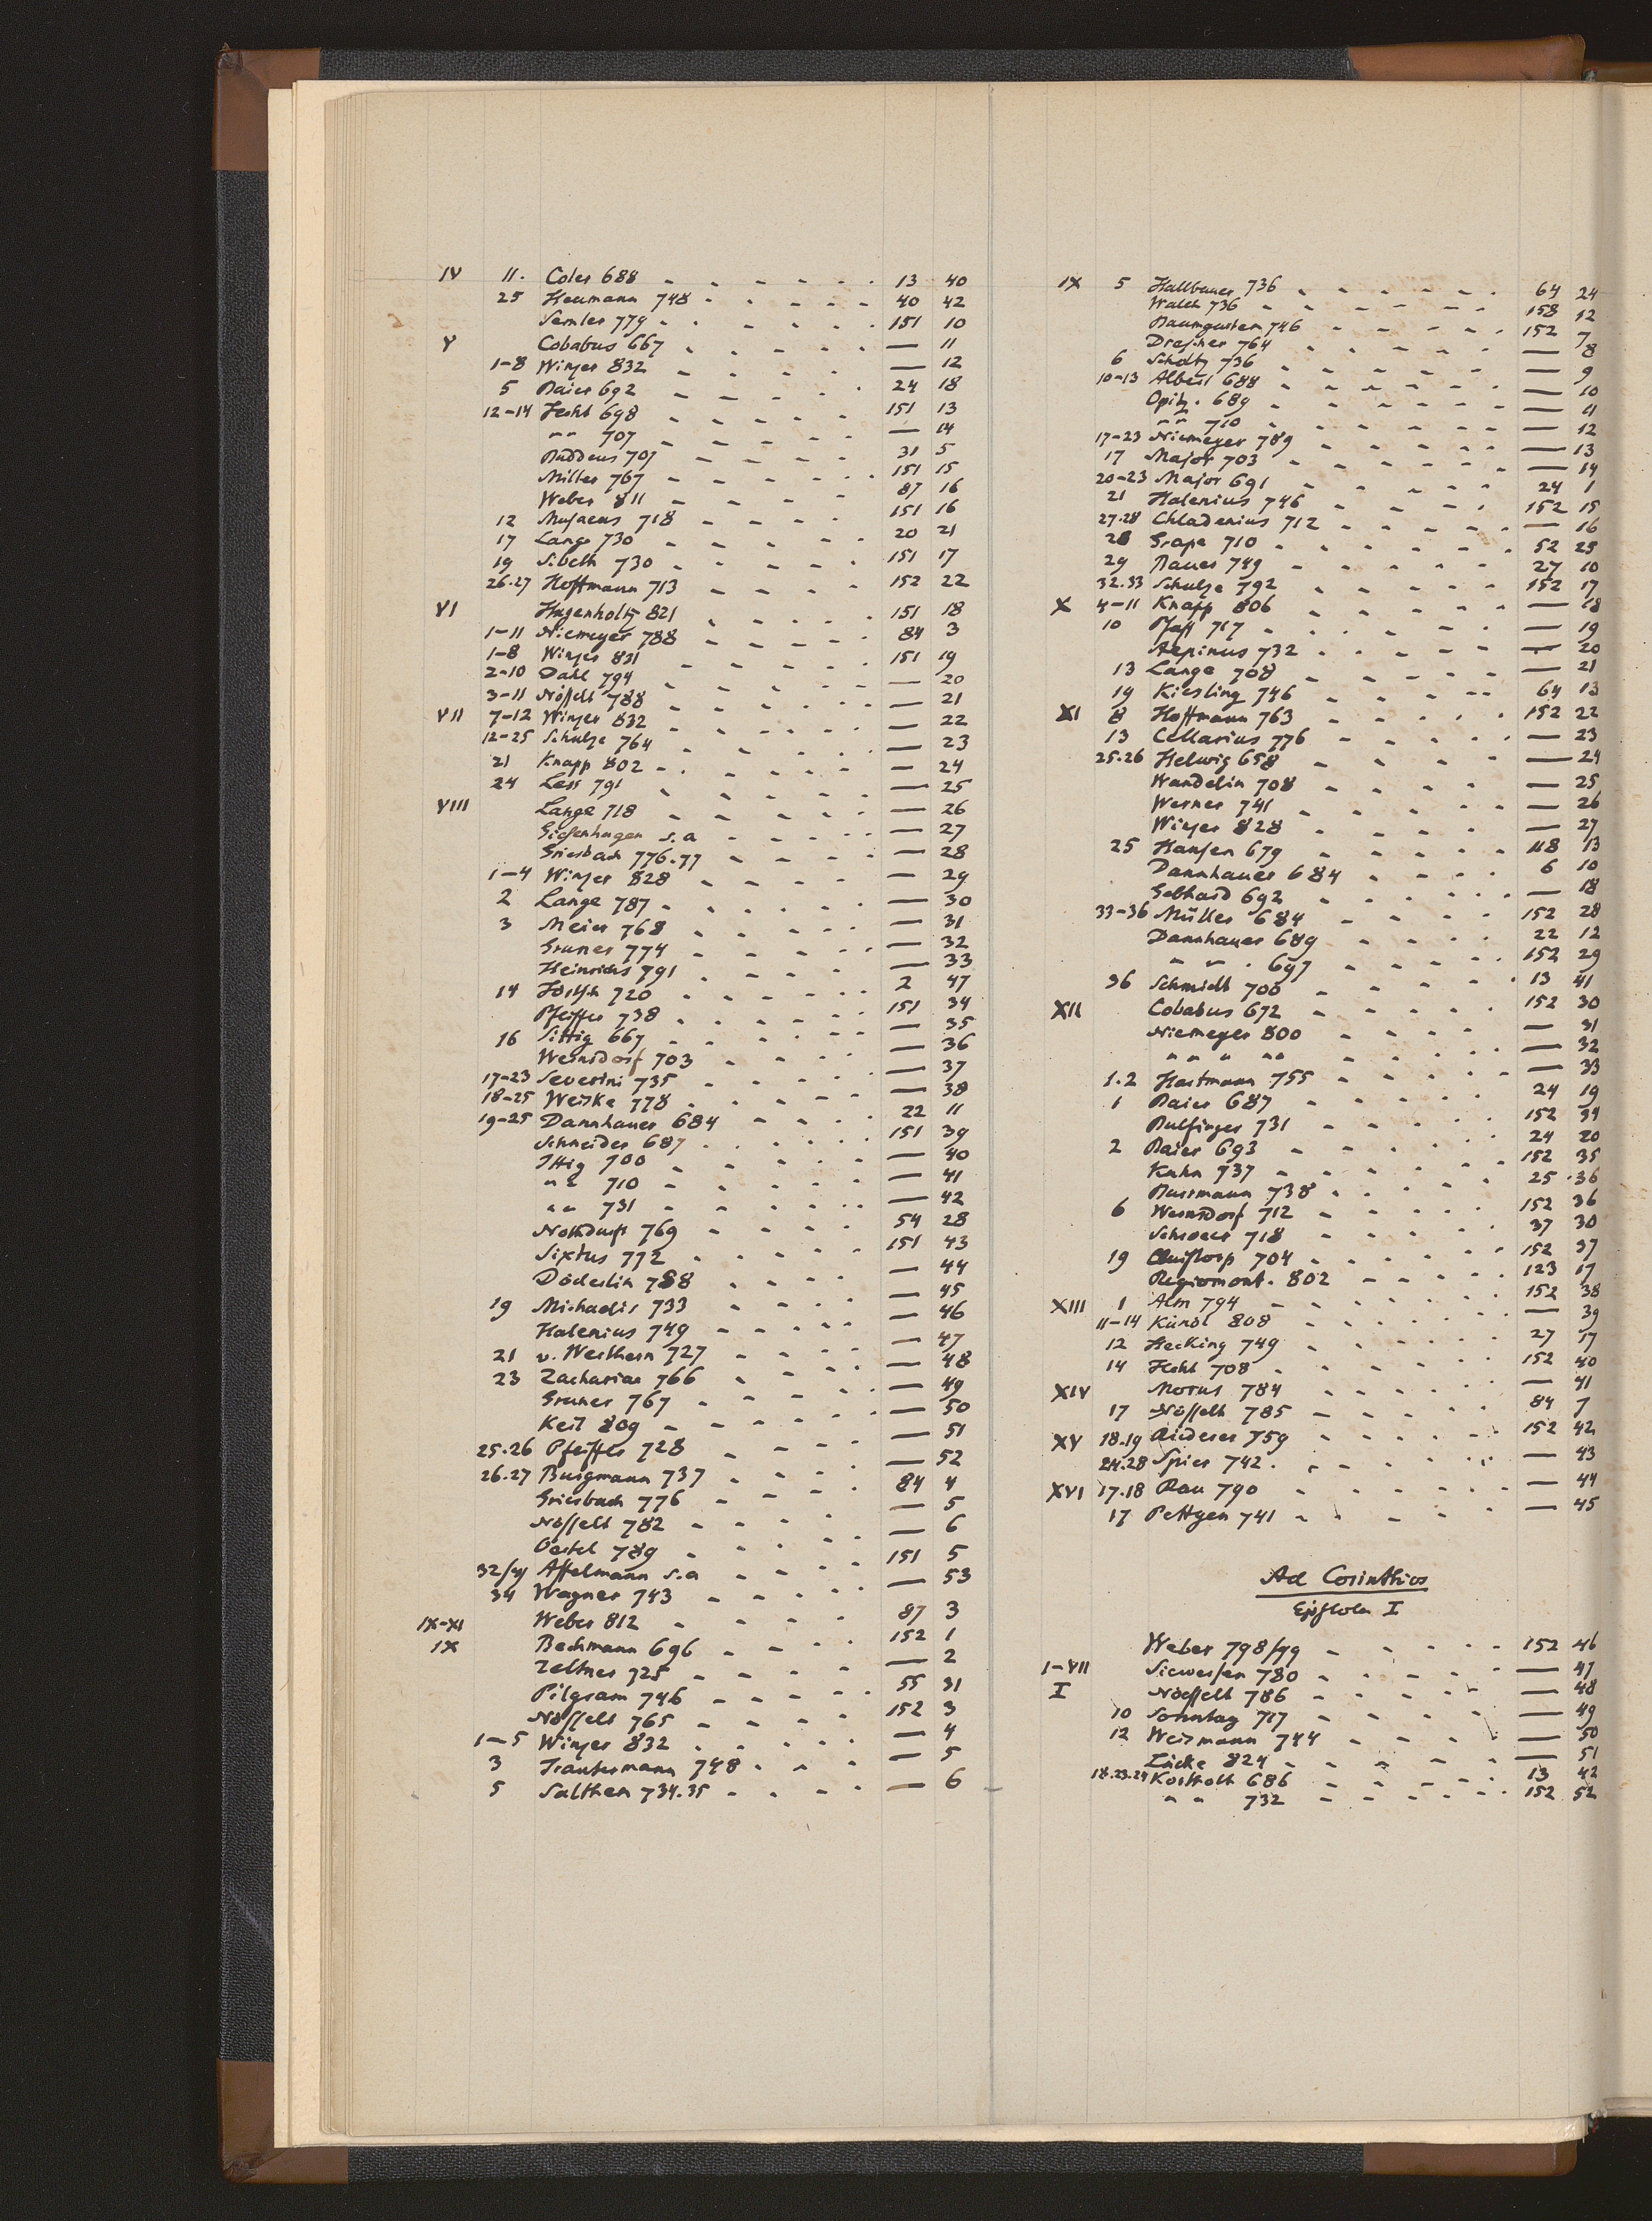 IV 11. Coler 688 - - - - - - 13 40
25 Heumann 748 - - - - - - 40 42
Semler 779 - - - - - - 151 10
V Cobabus 667 - - - - - — 11
1-8 Winzer 832 - - - - — 12
5 Baier 692 - - - - - 24 18
12-14 Hecht 698 - - - - - 151 13
" " 707 - - - - - — 14
Buddeus 707 - - - - - 31 5
Miller 767 - - - - - 151 15
Weber 811 - - - - - 87 16
12 Musaeus 718 - - - - 151 16
17 Lange 730 - - - - - 20 21
19 Sibeth 730 - - - - - 151 17
26.27 Hoffmann 713 - - - - 152 22
VI Hagenholtz 821 - - - - - 151 18
1-11 Niemeyer 788 - - - - - 84 3
1-8 Winzer 831 - - - - - 151 19
2-10 Dahl 794 - - - - - - — 20
3-11 Nösselt 788 - - - - - - — 21
VII 7-12 Winzer 832 - - - - - — 22
12-25 Schulze 764 - - - - - — 23
21 Knapp 802 - - - - - - — 24
24 Less 791 - - - - - - — 25
VIII Lange 718 - - - - - - — 26
Giesenhagen s.a - - - - - — 27
Griesbach 776.77 - - - - - — 28
1-4 Winzer 828 - - - - - — 29
2 Lange 787 - - - - - - — 30
3 Meier 768 - - - - - - — 31
Gruner 774 - - - - - - — 32
Heinrichs 791 - - - - - — 33
14 720 - - - - - 2 47
Pfeiffer 738 - - - - - 151 34
16 Sittig 667 - - - - - - — 35
Wernsdorf 703 - - - - — 36
17-23 Severini 735 - - - - - — 37
18-25 Weiske 778 - - - - - — 38
19-25 Dannhauer 684 - - - - 22 11
Schneider 687 - - - - - - 151 39
Ittig 700 - - - - - — 40
" " 710 - - - - - — 41
" " 731 - - - - - — 42
Nothdurft 769 - - - - - 54 28
Sixtus 772 - - - - - 151 43
Döderlin 788 - - - - — 44
19 Michaelis 733 - - - - — 45
Halenius 749 - - - - - — 46
21 v. Werthern 727 - - - - — 47
23 Zachariae 766 - - - - — 48
Gruner 767 - - - - - — 49
Keil 809 - - - - - - — 50
25.26 Pfeiffer 728 - - - - — 51
26.27 Burgmann 737 - - - - — 52
Griesbach 776 - - - - 84 4
Nösselt 782 - - - - — 5
Oertel 789 - - - - — 6
32/41 Affelmann s.a - - - - 151 5
34 Wagner 743 - - - - — 53
IX-XI Weber 812 - - - - 87 3
IX Bechmann 696 - - - - 152 1
Zeltner 725 - - - - - — 2
Pilgram 746 - - - - - 55 31
Nösselt 765 - - - - 152 3
1-5 Winzer 832 - - - - - — 4
3 Trautermann 748 - - - — 5
5 Salthen 734.35 - - - - - — 6
IX 5 Hallbauer 736 - - - - - - 64 24
Walch 736 - - - - - - 158 12
Baumgarten 746 - - - - 152 7
Drescher 764 - - - - - — 8
6 Scholtz 736 - - - - - - — 9
10-13 Alberti 688 - - - - - - — 10
Opitz. 689 - - - - - - — 11
" " 710 - - - - - - — 12
17-23 Niemeyer 789 - - - - - — 13
17 Major 703 - - - - - - — 14
20-23 Major 691 - - - - - 24 1
21 Halenius 746 - - - - - 152 15
27.28 Chladenius 712 - - - - - — 16
28 Grape 710 - - - - - - 52 25
29 Bauer 749 - - - - - 27 10
32.33 Schulze 792 - - - - - 152 17
X 4-11 Knapp 806 - - - - - — 18
10 Pfaff 717 - - - - - - — 19
Aepinus 732 - - - - - — 20
13 Lange 708 - - - - - — 21
19 Kiesling 746 - - - - - 64 13
XI 8 Hoffmann 763 - - - - - 152 22
13 Cellarius 776 - - - - - — 23
25.26 Helwig 658 - - - - - — 24
Wandelin 708 - - - - - — 25
Werner 741 - - - - - - — 26
Winzer 828 - - - - — 27
25 Hansen 679 - - - - - 118 13
Dannhauer 684 - - - - 6 10
Gebhard 692 - - - - - - — 18
33-36 Müller 684 - - - - 152 28
Dannhauer 689 - - - - 22 12
" " . 697 - - - - - 152 29
36 Schmidt 700 - - - - - 13 41
XII Cobabus 672 - - - - - 152 30
Niemeyer 800 - - - - — 31
" " " " " - - - - - — 32
1.2 Hartmann 755 - - - - - — 33
1 Baier 687 - - - - - 24 19
Bulfinger 731 - - - - - 152 34
2 Baier 693 - - - - - 24 20
Kahn 737 - - - - - - 152 35
Burmann 738 - - - - - 25 36
6 Wernsdorf 712 - - - - - 152 36
Schroeer 718 - - - - - 37 30
19 Quistorp 704 - - - - - - 152 37
Regiomont. 802 - - - - - 123 17
XIII 1 Alm 794 - - - - - - 152 38
11-14 Künöl 808 - - - - - — 39
12 Hecking 749 - - - - - 27 17
14 Hecht 708 - - - - - - 152 40
XIV Morus 784 - - - - - — 41
17 Nösselt 785 - - - - - 84 7
XV 18.19 Riederer 759 - - - - - - 152 42
24.28 Spies 742. - - - - - — 43
XVI 17.18 Rau 790 - - - - - - — 44
17 Pettgen 741 - - - - - — 45
Ad Corinthios
Epistola I
Weber 798/99 - - - - - 152 46
I-VII Siewersen 780 - - - - - — 47
I Nösselt 786 - - - - - — 48
10 Sonntag 717 - - - - - — 49
12 Weismann 744 - - - - - — 50
Lücke 824 - - - - - — 51
18.23.24 Kortholt 686 - - - - - 13 42
" " 732 - - - - - - 152 52